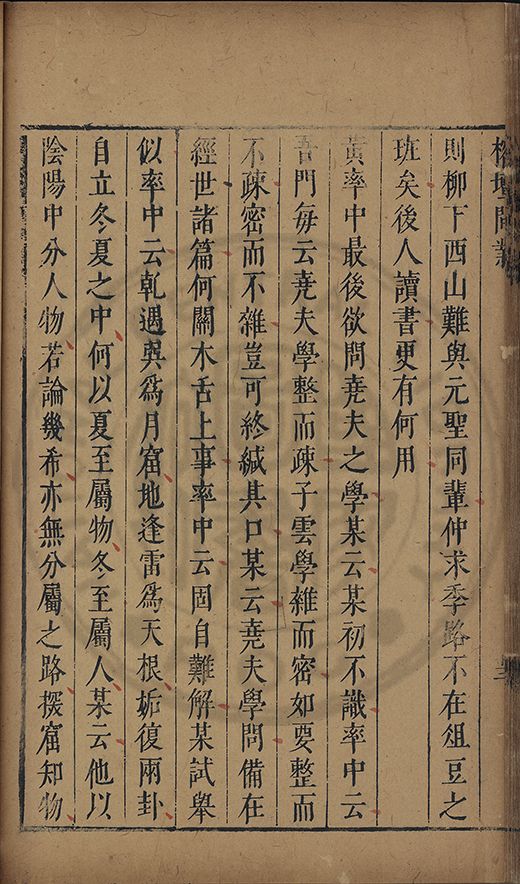 榕壇問業
則柳下西山難與元聖同輩仲求季路不在俎豆之
班矣後人讀書更有何用
黃率中最後欲問堯夫之學某云某初不識率中云
吾門每云堯夫學整而疎子雲學雜而密如要整而
不疎密而不雜豈可終緘其口某云堯夫學問備在
經世諸篇何關木舌上事率中云固自難解某試舉
似率中云乾遇巽爲月窟地逢雷爲天根垢復兩卦
自立冬夏之中何以夏至屬物冬至屬人某云他以
陰陽中分人物若論幾希亦無分屬之路探窟知物